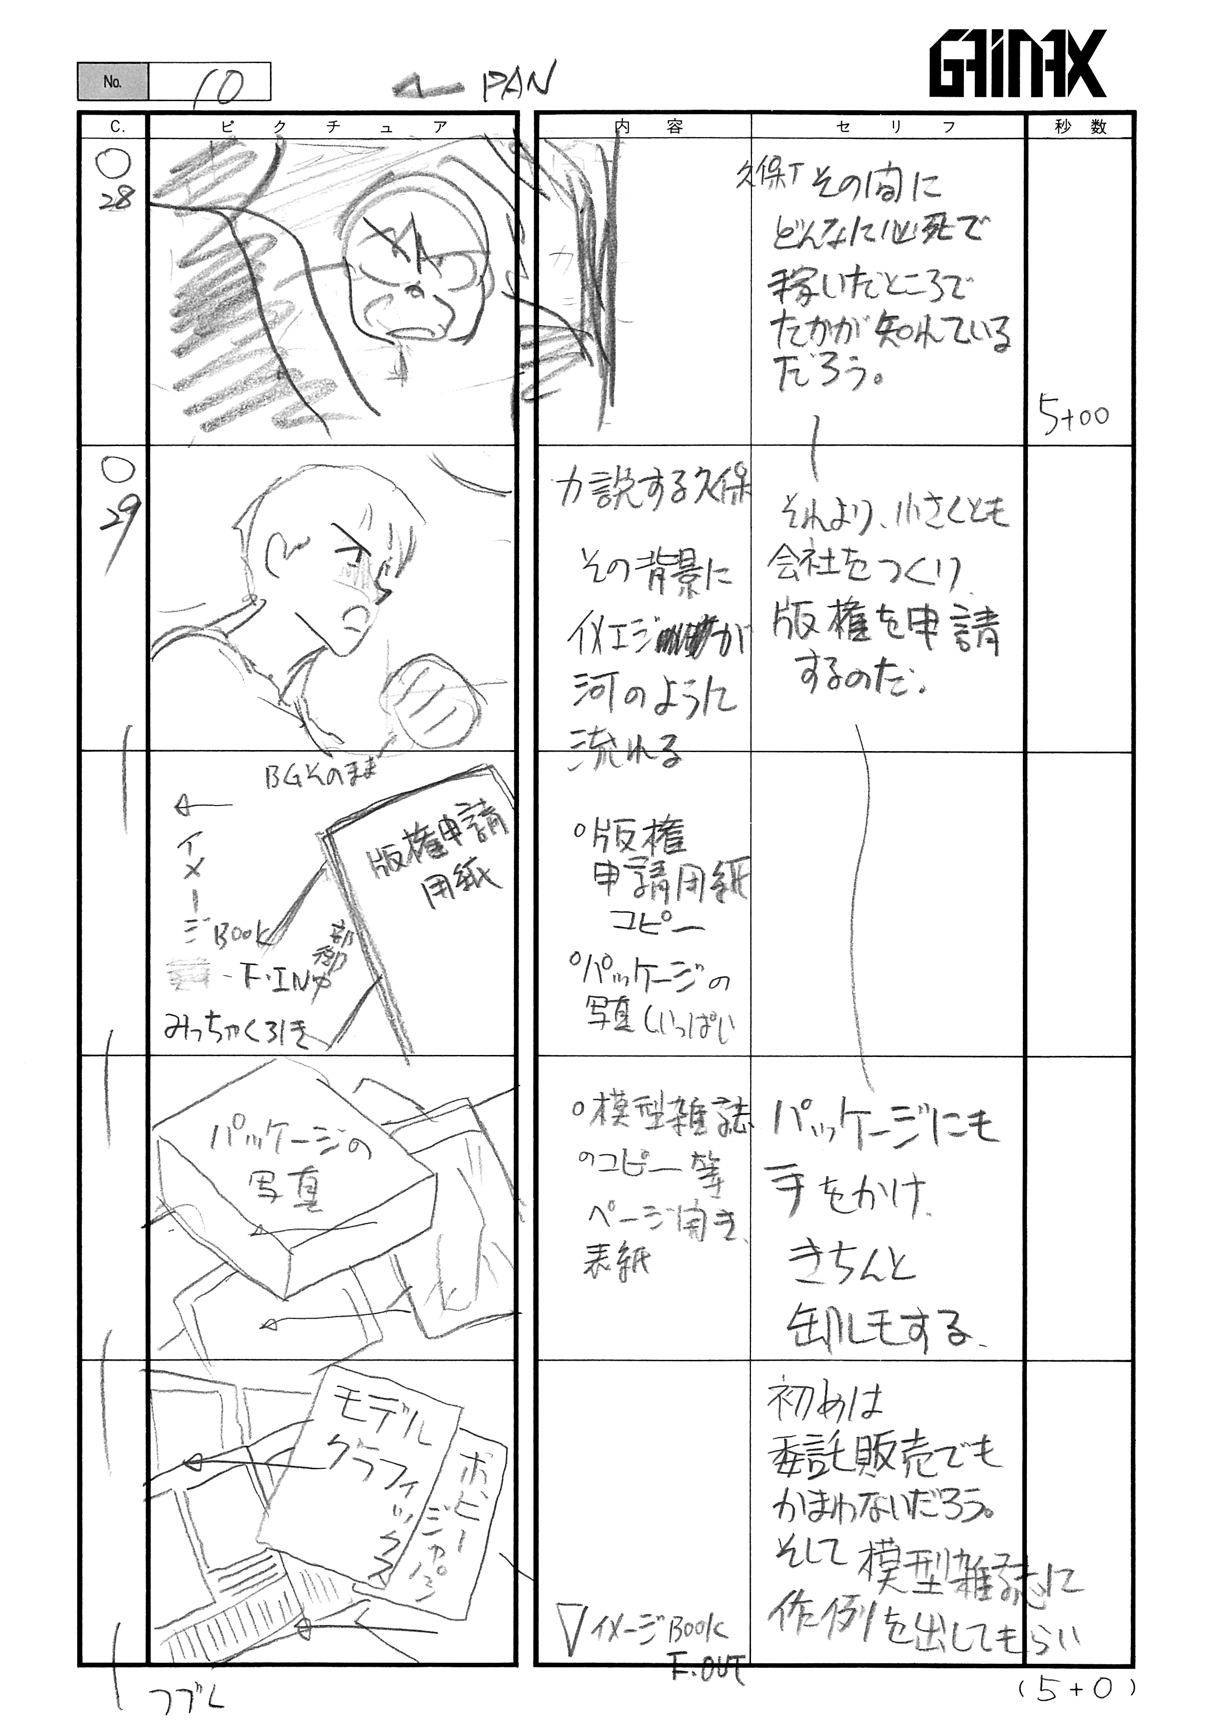 GAINAX
No. 10
← PAN
C. ピクチュア 内容 セリフ 秒数
28
久保「その間に
どんなに必死で
稼いだところで
たかが知れている
だろう。
5+00
29
力説する久保
その背景に
イメエジ
が
河のように
流れる
それより、小さくとも
会社をつくり
版権を申請
するのだ。
BGそのまま
←
イメージBOOK
-F・IN
みっちゃく引き
版権申請
用紙
○版権
申請用紙
コピー
○パッケージの
写真(いっぱい
パッケージの
写真
○模型雑誌
のコピー等
ページ開き、
表紙
パッケージにも
手をかけ、
きちんと
印刷もする、
モデル
グラフィックス
ホビー
ジャパン
▽イメージBOOK
F.OUT
初めは
委託販売でも
かまわないだろう。
そして模型雑誌に
作例を出してもらい
(5+0)